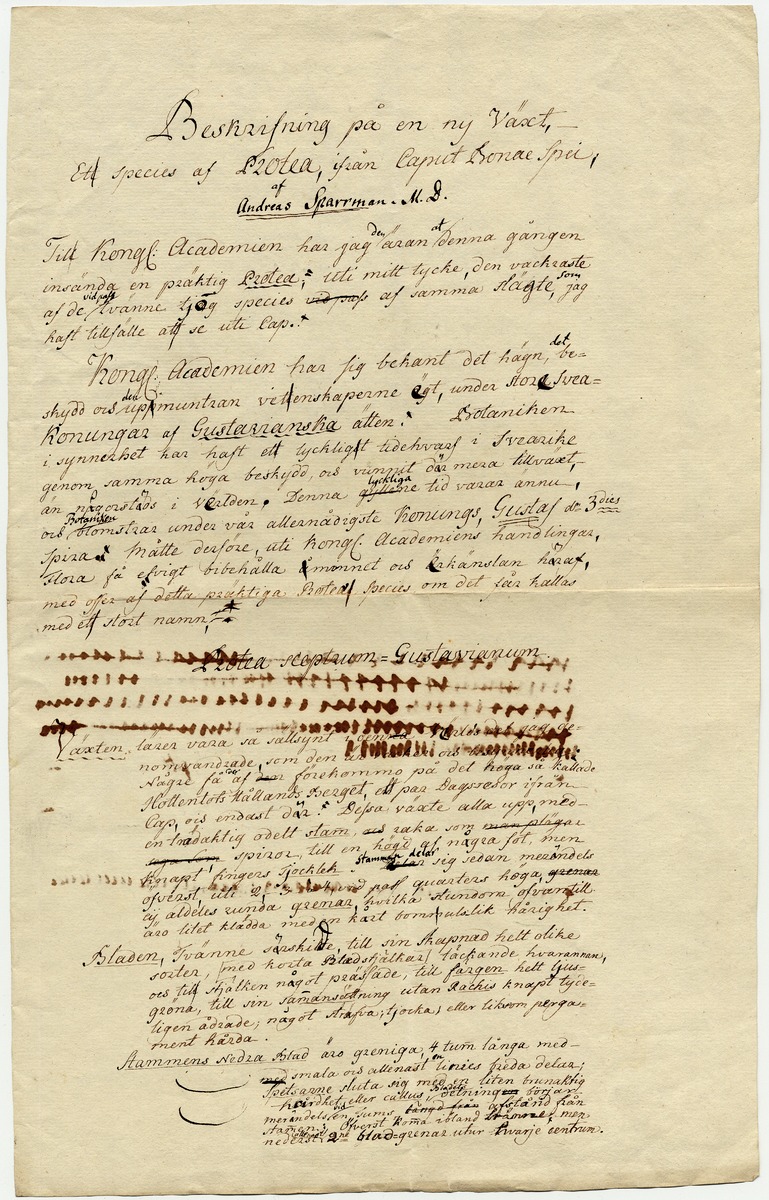 Beskrifning på en ny Växt,
Ett species af Protea, ifrån Caput Bonae Spei,
af
Andreas Sparrman. M. D.
Till Kongl: Academien har jag den äran at denna gången
insända en präktig Protea; uti mitt tycke, den vackraste
af de vid pass tvänne tjog species vid pass af samma slägte, som jag
haft tillfälle att se uti Cap.
Kongl: Academien har sig bekant det hägn, det be-
skydd och den uppmuntran vettenskaperne ägt, under stora Svea-
Konungar af Gustavianska ätten. Botaniken
i synnerhet har haft ett lyckligt tidehvarf i Svearike
genom samma höga beskydd, och vunnit där mera tillväxt,
än någorstäds i Verlden. Denna lyckliga gyllene tid varar ännu,
och Botaniken blomstrar under vår allernådigste Konungs, Gustaf den 3dies
Spira. Måtte derföre, uti Kongl. Academiens handlingar,
Flora få efvigt bibehålla åminnet och Erkänslan häraf,
med offer af detta präktiga Protea Species om det får kallas
med ett stort namn,
Protea sceptrum=Gustavianum.
Växten lärer vara så sällsynt i den jag ge-
nomvandrade, som den är och
Några få af den förekommo på det höga så kallade
Hottentots Hållands Berget, ett par Dagsresor ifrån
Cap, och endast där. Dessa växte alla upp, med
en trädaktig odelt stam, och raka som man plägar
spiror, till en högd af några fot, men
knapt fingers tjocklek. Stammen delar sig sedan merändels
öfverst, uti 2, 3 vid pass quarters höga, grenar
ej aldeles runda grenar, hvilka stundom ofvantill
äro litet klädda med en kårt bommulslik hårighet.
Bladen, Tvänne särskilde, till sin skapnad helt olike
sorter, med korta Bladstjälkar täckande hvarannan,
och till stjälken något prässade, till färgen helt ljus-
gröna, till sin samansättning utan Rachis knapt tyde-
ligen ådrade; något sträfva, tjocka, eller liksom perga-
ment hårda.
Stammens Nedra Blad äro greniga, 4 tum långa med
med smala och allenast en linies breda delar;
Spetsarne sluta sig med en liten brunaktig
hårdhet eller callus, Bladens delningen börjar
merändels en tums längd från afstånd från
stamen; Öfverst koma ibland men
nederst 2ne blad=grenar utur hvarje centrum.